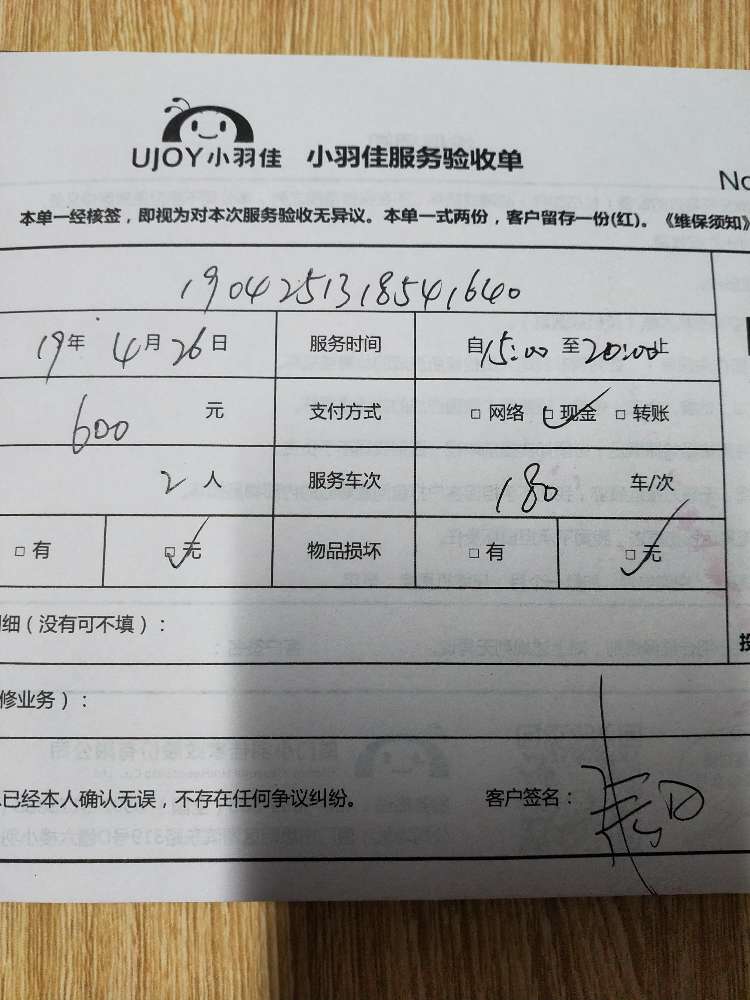 UJOY小羽佳 小羽佳服务验收单
No
本单一经核签，即视为对本次服务验收无异议。本单一式两份，客户留存一份(红)。《维保须知》
1904251318541640
19年 4月 26日 服务时间 自15:00至20:00止
600 元 支付方式 □ 网络 □ 现金 □ 转账
2人 服务车次 180 车/次
□ 有 □ 无 物品损坏 □ 有 □ 无
细（没有可不填）：
修业务）：
已经本人确认无误，不存在任何争议纠纷。 客户签名：